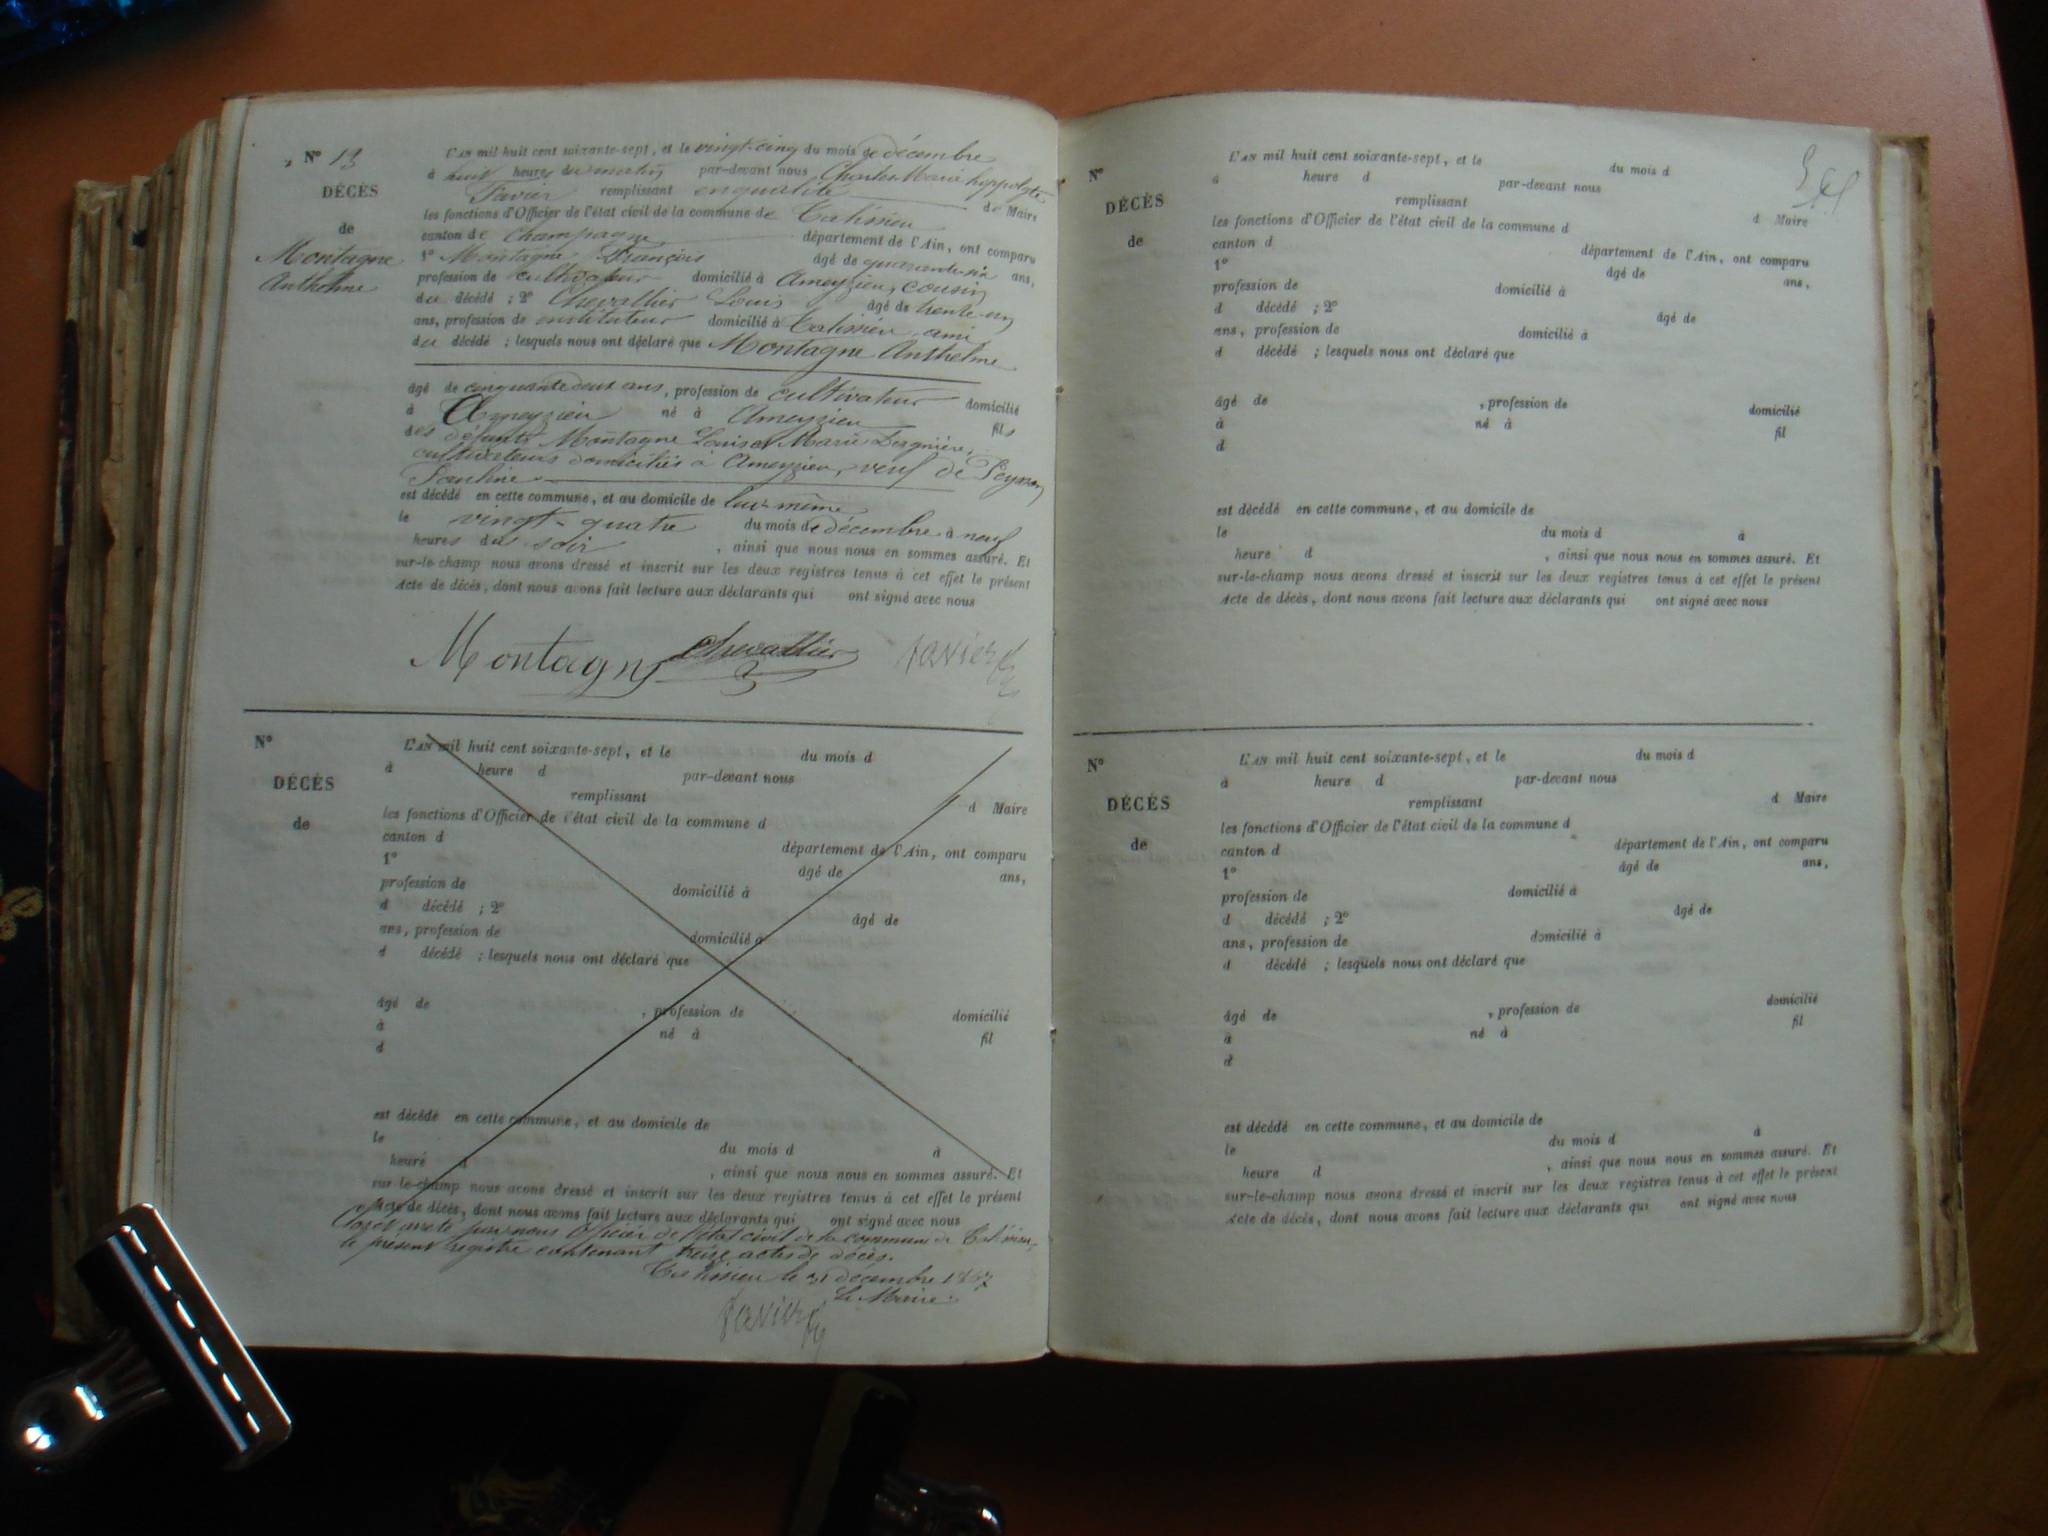 N° 13
DÉCÈS
de
Montagne
Anthelme
L'AN mil huit cent soixante-sept, et le vingt-cinq du mois de décembre
à huit heures du matin par-devant nous Charles Marie hyppolyte
Favier remplissant en qualité de Maire
les fonctions d'Officier de l'état civil de la commune de Talissieu
canton de Champagne département de l'Ain, ont comparu
1° Montagne François âgé de quarante-six ans,
profession de cultivateur domicilié à Ameyzieu, cousin
du décédé ; 2° Chevallier Louis âgé de trente-un
ans, profession de instituteur domicilié à Talissieu, ami
du décédé ; lesquels nous ont déclaré que Montagne Anthelme
âgé de cinquante deux ans, profession de cultivateur domicilié
à Ameyzieu né à Ameyzieu fils
des défunts Montagne Louis et Marie
cultivateurs domiciliés à Ameyzieu, veuf de Peysson
Pauline
est décédé en cette commune, et au domicile de lui-même
le vingt-quatre du mois de décembre à neuf
heures du soir , ainsi que nous nous en sommes assuré. Et
sur-le-champ nous avons dressé et inscrit sur les deux registres tenus à cet effet le présent
Acte de décès, dont nous avons fait lecture aux déclarants qui ont signé avec nous
Montagne Chevallier Favier
N°
DÉCÈS
de
L'AN mil huit cent soixante-sept, et le du mois d
à heure d par-devant nous
remplissant d Maire
les fonctions d'Officier de l'état civil de la commune d
canton d département de l'Ain, ont comparu
1° âgé de ans,
profession de domicilié à
d décédé ; 2° âgé de
ans, profession de domicilié à
d décédé ; lesquels nous ont déclaré que
âgé de , profession de domicilié
à né à fil
d
est décédé en cette commune, et au domicile de
le du mois d à
heure d , ainsi que nous nous en sommes assuré. Et
sur-le-champ nous avons dressé et inscrit sur les deux registres tenus à cet effet le présent
Acte de décès, dont nous avons fait lecture aux déclarants qui ont signé avec nous
Clos et areté par nous Officier de l'état civil de la commune de Talissieu,
le présent registre contenant treize actes de décès.
Talissieu le 31 décembre 1867
Le Maire.
Favier
N°
DÉCÈS
de
L'AN mil huit cent soixante-sept, et le du mois d
à heure d par-devant nous
remplissant d Maire
les fonctions d'Officier de l'état civil de la commune d
canton d département de l'Ain, ont comparu
1° âgé de ans,
profession de domicilié à
d décédé ; 2° âgé de
ans, profession de domicilié à
d décédé ; lesquels nous ont déclaré que
âgé de , profession de domicilié
à né à fil
d
est décédé en cette commune, et au domicile de
le du mois d à
heure d , ainsi que nous nous en sommes assuré. Et
sur-le-champ nous avons dressé et inscrit sur les deux registres tenus à cet effet le présent
Acte de décès, dont nous avons fait lecture aux déclarants qui ont signé avec nous
N°
DÉCÈS
de
L'AN mil huit cent soixante-sept, et le du mois d
à heure d par-devant nous
remplissant d Maire
les fonctions d'Officier de l'état civil de la commune d
canton d département de l'Ain, ont comparu
1° âgé de ans,
profession de domicilié à
d décédé ; 2° âgé de
ans, profession de domicilié à
d décédé ; lesquels nous ont déclaré que
âgé de , profession de domicilié
à né à fil
d
est décédé en cette commune, et au domicile de
le du mois d à
heure d , ainsi que nous nous en sommes assuré. Et
sur-le-champ nous avons dressé et inscrit sur les deux registres tenus à cet effet le présent
Acte de décès, dont nous avons fait lecture aux déclarants qui ont signé avec nous